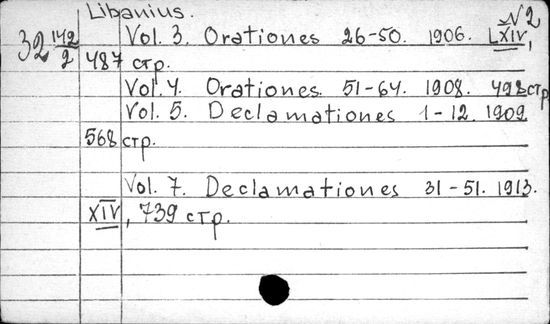 Libanius.
N2
32 142/2
Vol. 3. Orationes 26-50. 1906. LXIV,
487 стр.
Vol. 4. Orationes 51-64. 1908. 498 стр
Vol. 5. Declamationes 1-12. 1909.
568 стр.
Vol. 7. Declamationes 31-51. 1913.
XIV, 739 стр.